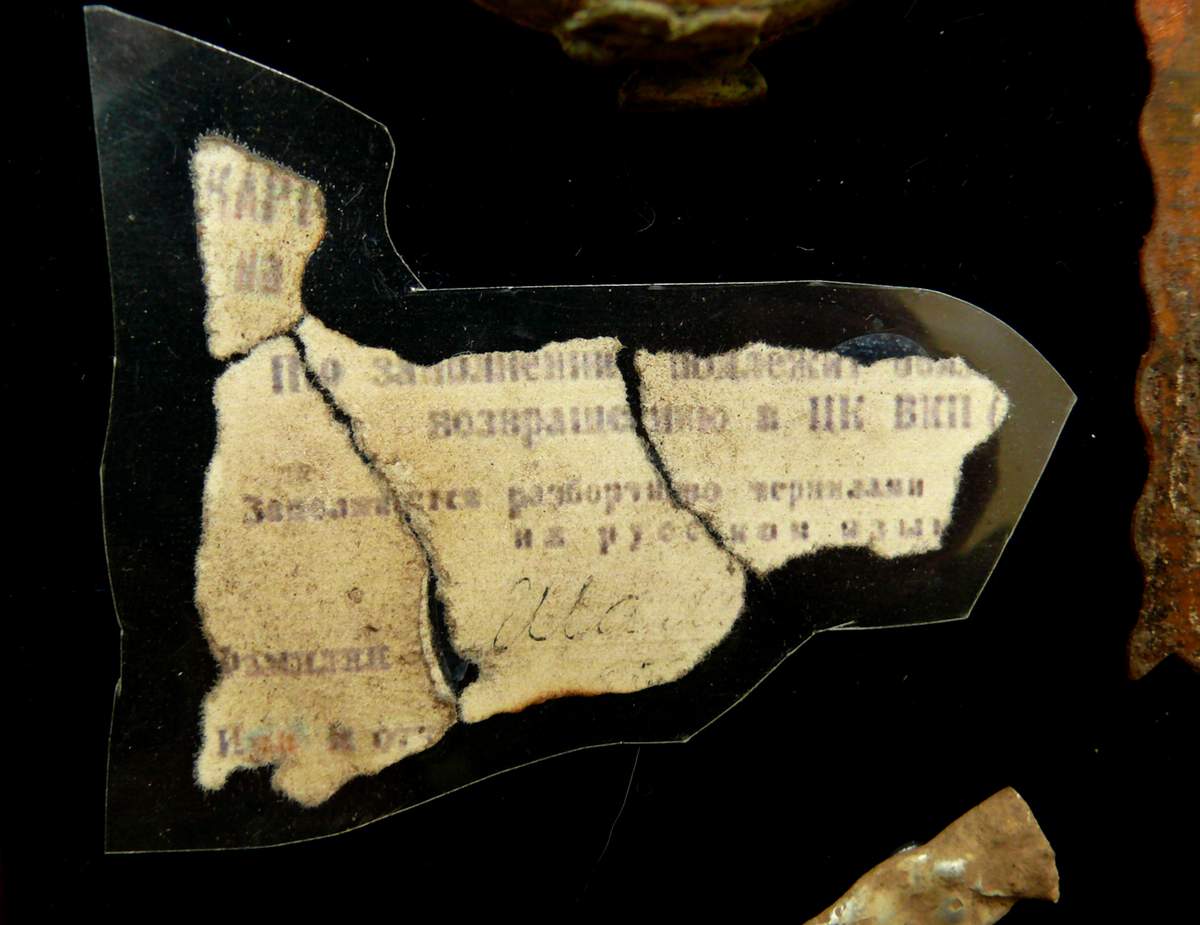 КАРТ
на
По заполнении подлежит обяз
возвращению в ЦК ВКП(
Заполняется разборчиво чернилами
на русском язык
Ива
Фамилия
Имя и отч